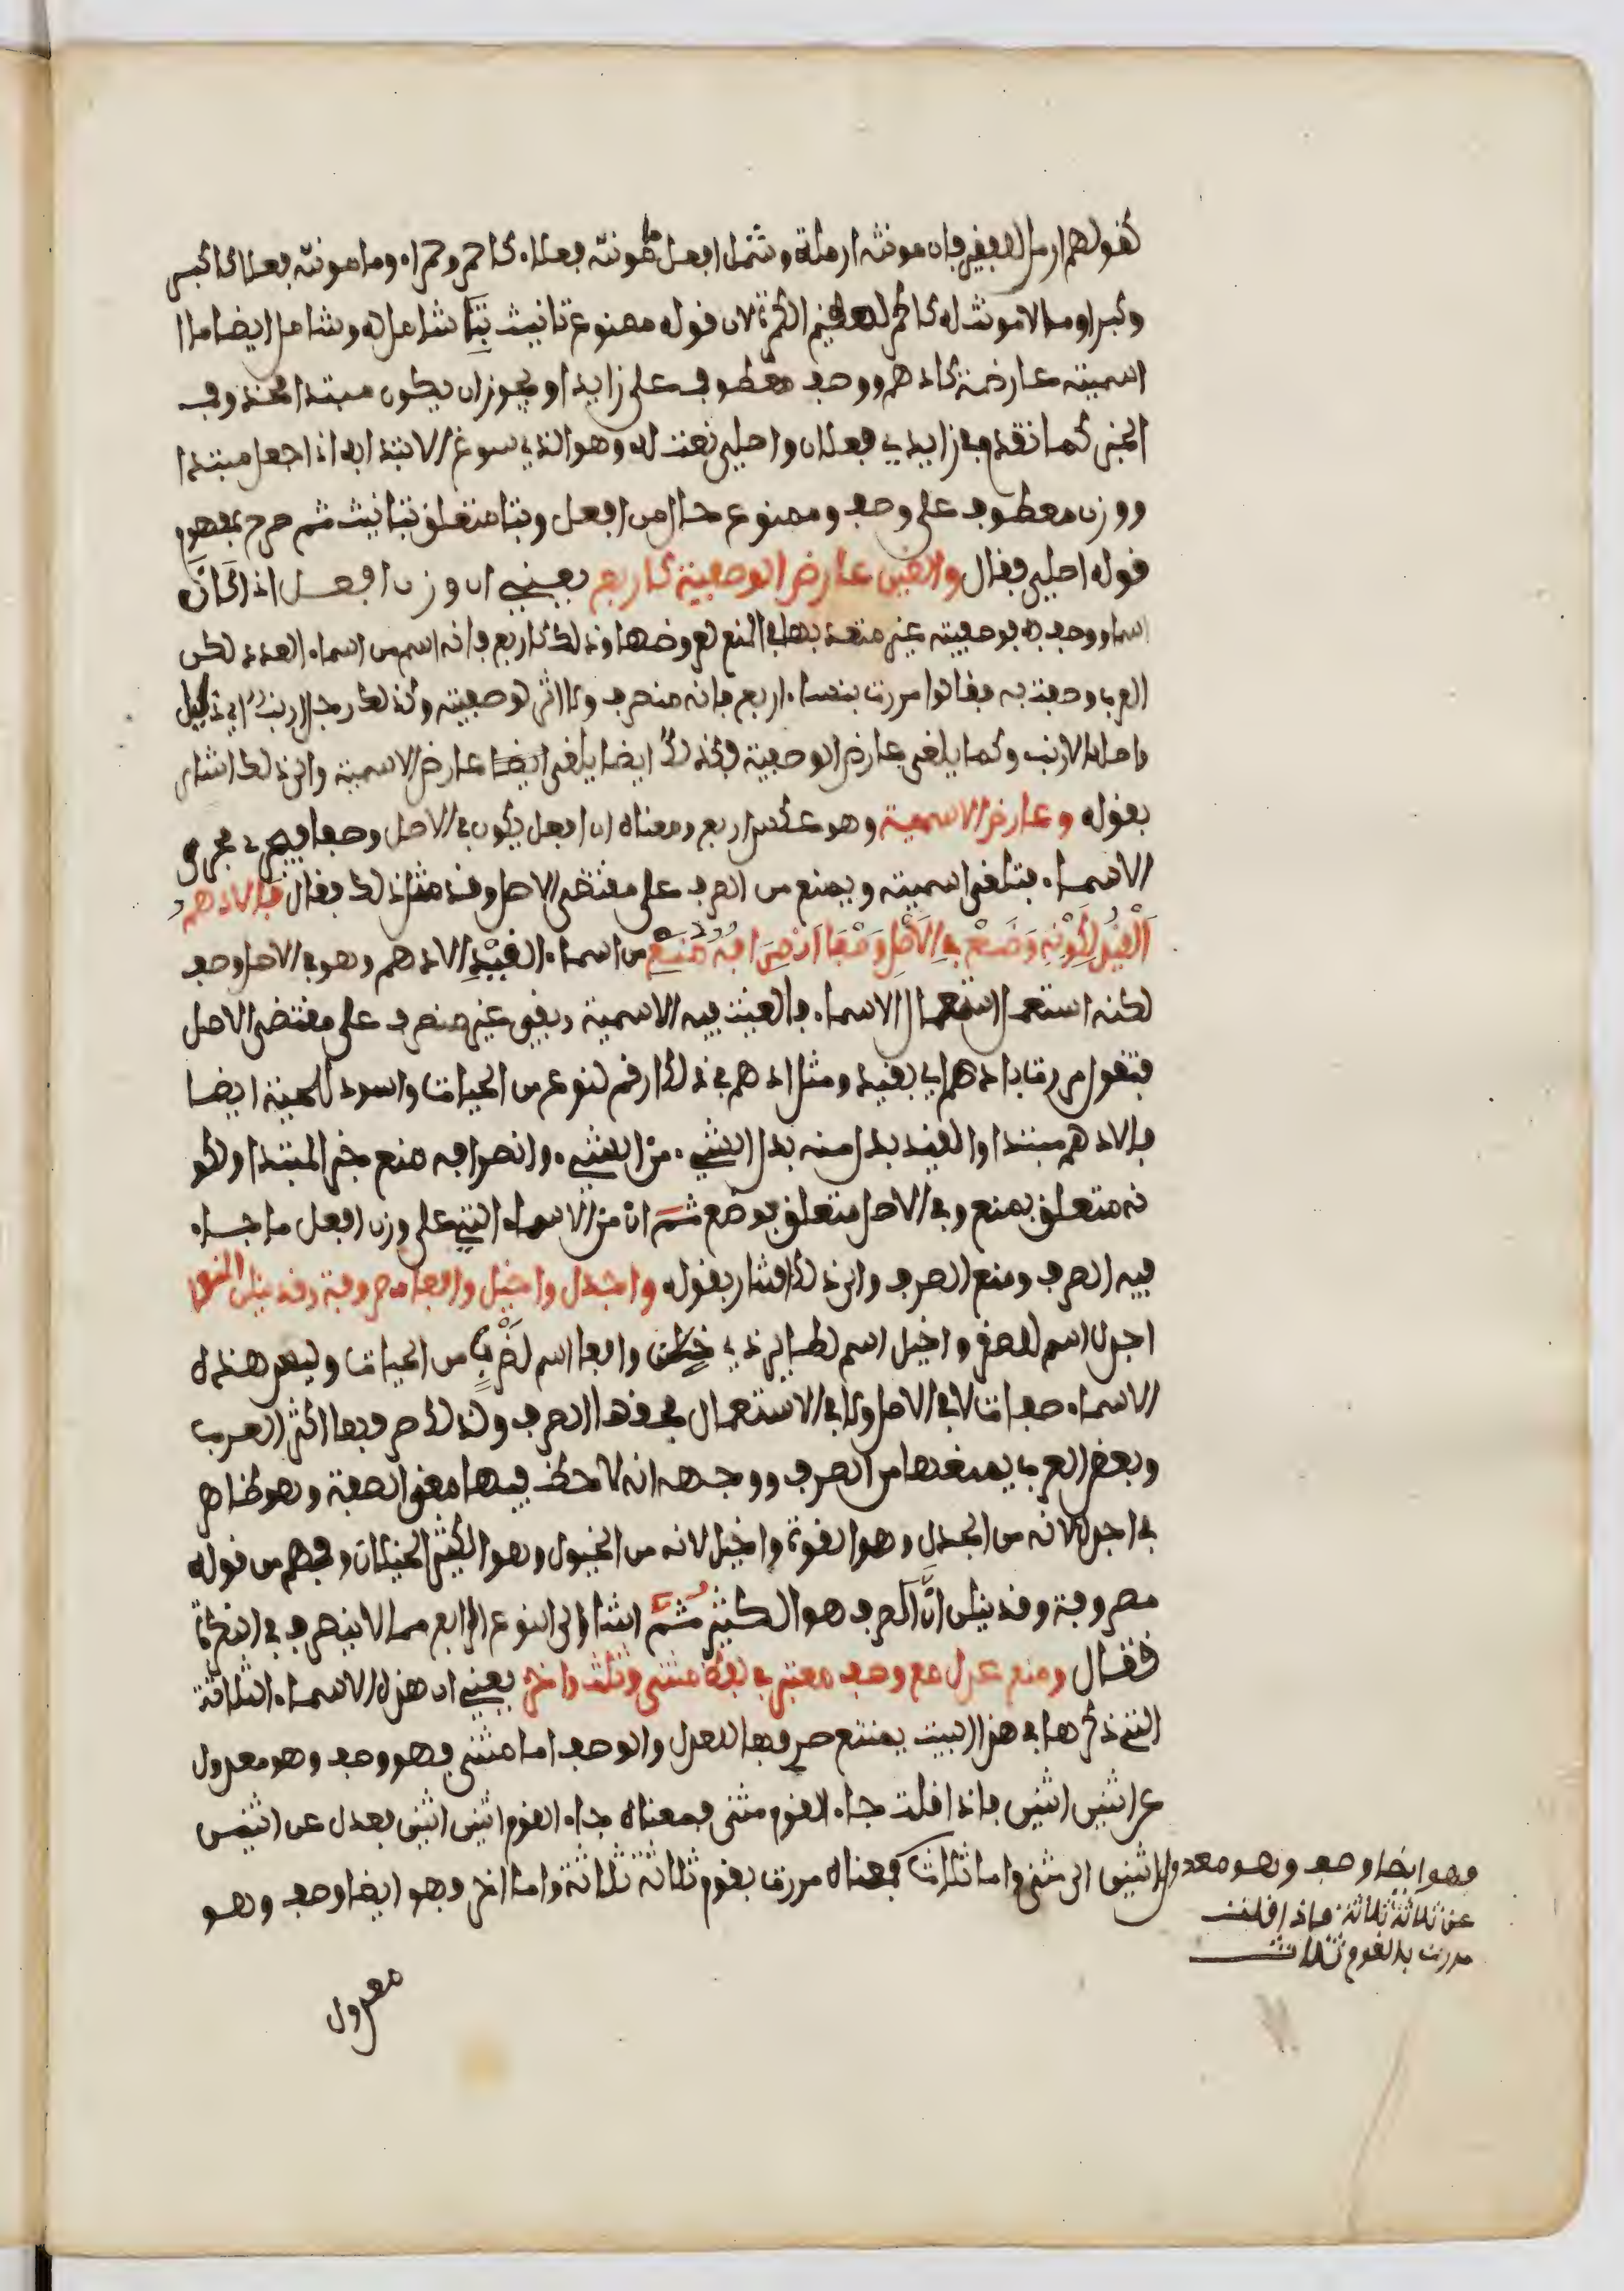 كقولهم ارمل للفقير فان مونثه ارملة وشمل افعل ما مونثه فعلاء كاحمر وحمراء وما مونثه فعلا كاكبر
وكبرا وما لا مونث له كاكمر لعظيم الكمرة لان قوله ممنوع تانيث بتا شامل له وشامل ايضا ما
اسميته عارضة كادهم ووصف معطوف على زايدا ويجوز ان يكون مبتدا محذوف
الخبر كما تقدم في زايدي فعلان واصلي نعت له وهو الذي سوغ الابتدا به اذا جعل مبتدا
ووزن معطوف على وصف وممنوع حال من افعل وبتا متعلق بتانيث ثم صرح بمفهوم
قوله اصلي فقال والغين عارض الوصفية كاربع يعني ان وزن افعل اذا كان
اسما ووصف به فوصفيته غير معتد بها في المنع لعروضها وذلك كاربع فانه اسم من اسماء العدد لكن
العرب وصفت به فقالوا مررت بنساء اربع فانه منصرف ولا اثر لوصفيته وكذلك رجل ارنب اي ذليل
واصله الارنب وكما يلغى عارض الوصفية فكذلك ايضا يلغى ايضا عارض الاسمية والى ذلك اشار
بقوله وعارض الاسمية وهو عكس اربع ومعناه ان افعل يكون في الاصل وصفا فيجرى مجرى
الاسماء فتلغى اسميته ويمنع من الصرف على مقتضى الاصل وقد مثل ذلك فقال فالادهم
القيد لكونه وضع في الاصل وصفا انصرافه منع من اسماء القيد الادهم وهو في الاصل وصف
لكنه استعمل استعمال الاسماء فالغيت فيه الاسمية وبقي غير منصرف على مقتضى الاصل
فتقول مررت بادهم اي بقيد ومثل ادهم في ذلك ارقم لنوع من الحيات واسود للحية ايضا
فالادهم مبتدا والقيد بدل منه بدل الشيء من الشيء وانصرافه منع خبر المبتدا ولكو
نه متعلق بمنع وفي الاصل متعلق بوضع ثم ان من الاسماء التي على وزن افعل ما جاء
فيه الصرف ومنع الصرف والى ذلك اشار بقوله واجدل واخيل وافعا مصروفة وقد ينلن المنعا
اجدل اسم للصقر واخيل اسم لطاير ذي خيلان وافعا اسم لضرب من الحيات وليس هذه
الاسماء صفات لا في الاصل ولا في الاستعمال فحقها الصرف ولذلك صرفها اكثر العرب
وبعض العرب يمنعها من الصرف ووجهه انه لاحظ فيها معنى الصفة وهو ظاهر
في اجدل لانه من الجدل وهو القوة واخيل لانه من الخيول وهو الكثير الخيلان وفهم من قوله
مصروفة وقد ينلن ان الصرف هو الكثير ثم اشار الى النوع الرابع مما لا ينصرف في النكرة
فقال ومنع عدل مع وصف معتبر في لفظ مثنى وثلث واخر يعني ان هذه الاسماء الثلاثة
التي ذكرها في هذا البيت يمتنع صرفها للعدل والوصف اما مثنى فهو وصف وهو معدول
عن اثنين اثنين فاذا قلت جاء القوم مثنى فمعناه جاء القوم اثنين اثنين فعدل عن اثنين
اثنين الى مثنى واما ثلاث فمعناه مررت بقوم ثلاثة ثلاثة واما اخر فهو ايضا وصف وهو
فهو ايضا وصف وهو معدول
عن ثلاثة ثلاثة فاذا قلت
مررت بالقوم ثلاث
معدول